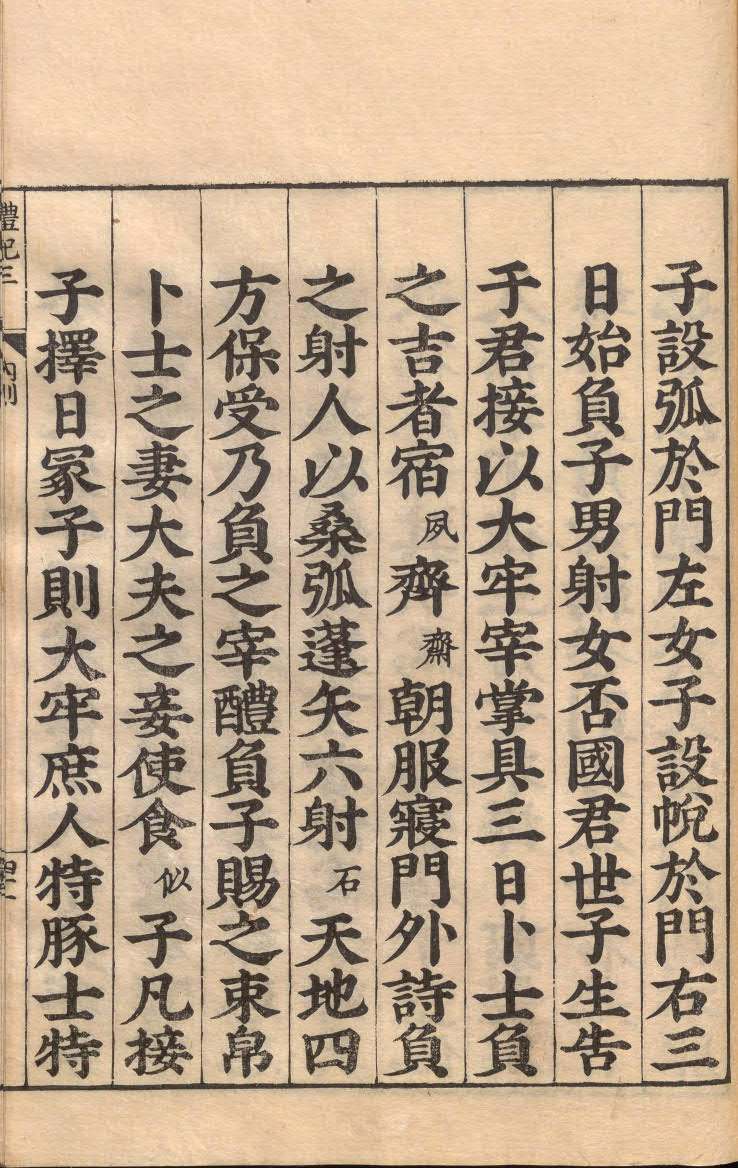 子設弧於門左女子設帨於門右三
日始負子男射女否國君世子生告
于君接以大牢宰掌具三日卜士負
之吉者宿夙齊齋朝服寢門外詩負
之射人以桑弧蓬矢六射石天地四
方保受乃負之宰醴負子賜之束帛
卜士之妻大夫之妾使食似子凡接
子擇日冢子則大牢庶人特豚士特
禮記三
內則